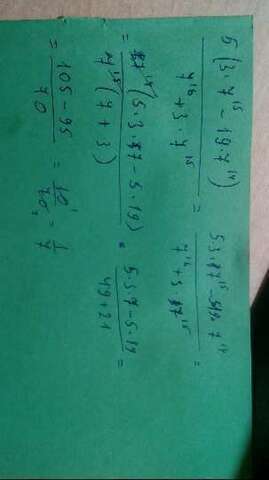 5(3·7¹⁵ − 19·7¹⁴) / 7¹⁶ + 3·7¹⁵ = 5 3·7¹⁵ − 7¹⁴ / 7¹⁶ + 3·7¹⁵ =
= 7¹⁴(5·3·7 − 5·19) / 7¹⁵(7 + 3) = 5·3·7 − 5·19 / 49 + 21 =
= 105 − 95 / 70 = 10 / 70 = 1 / 7